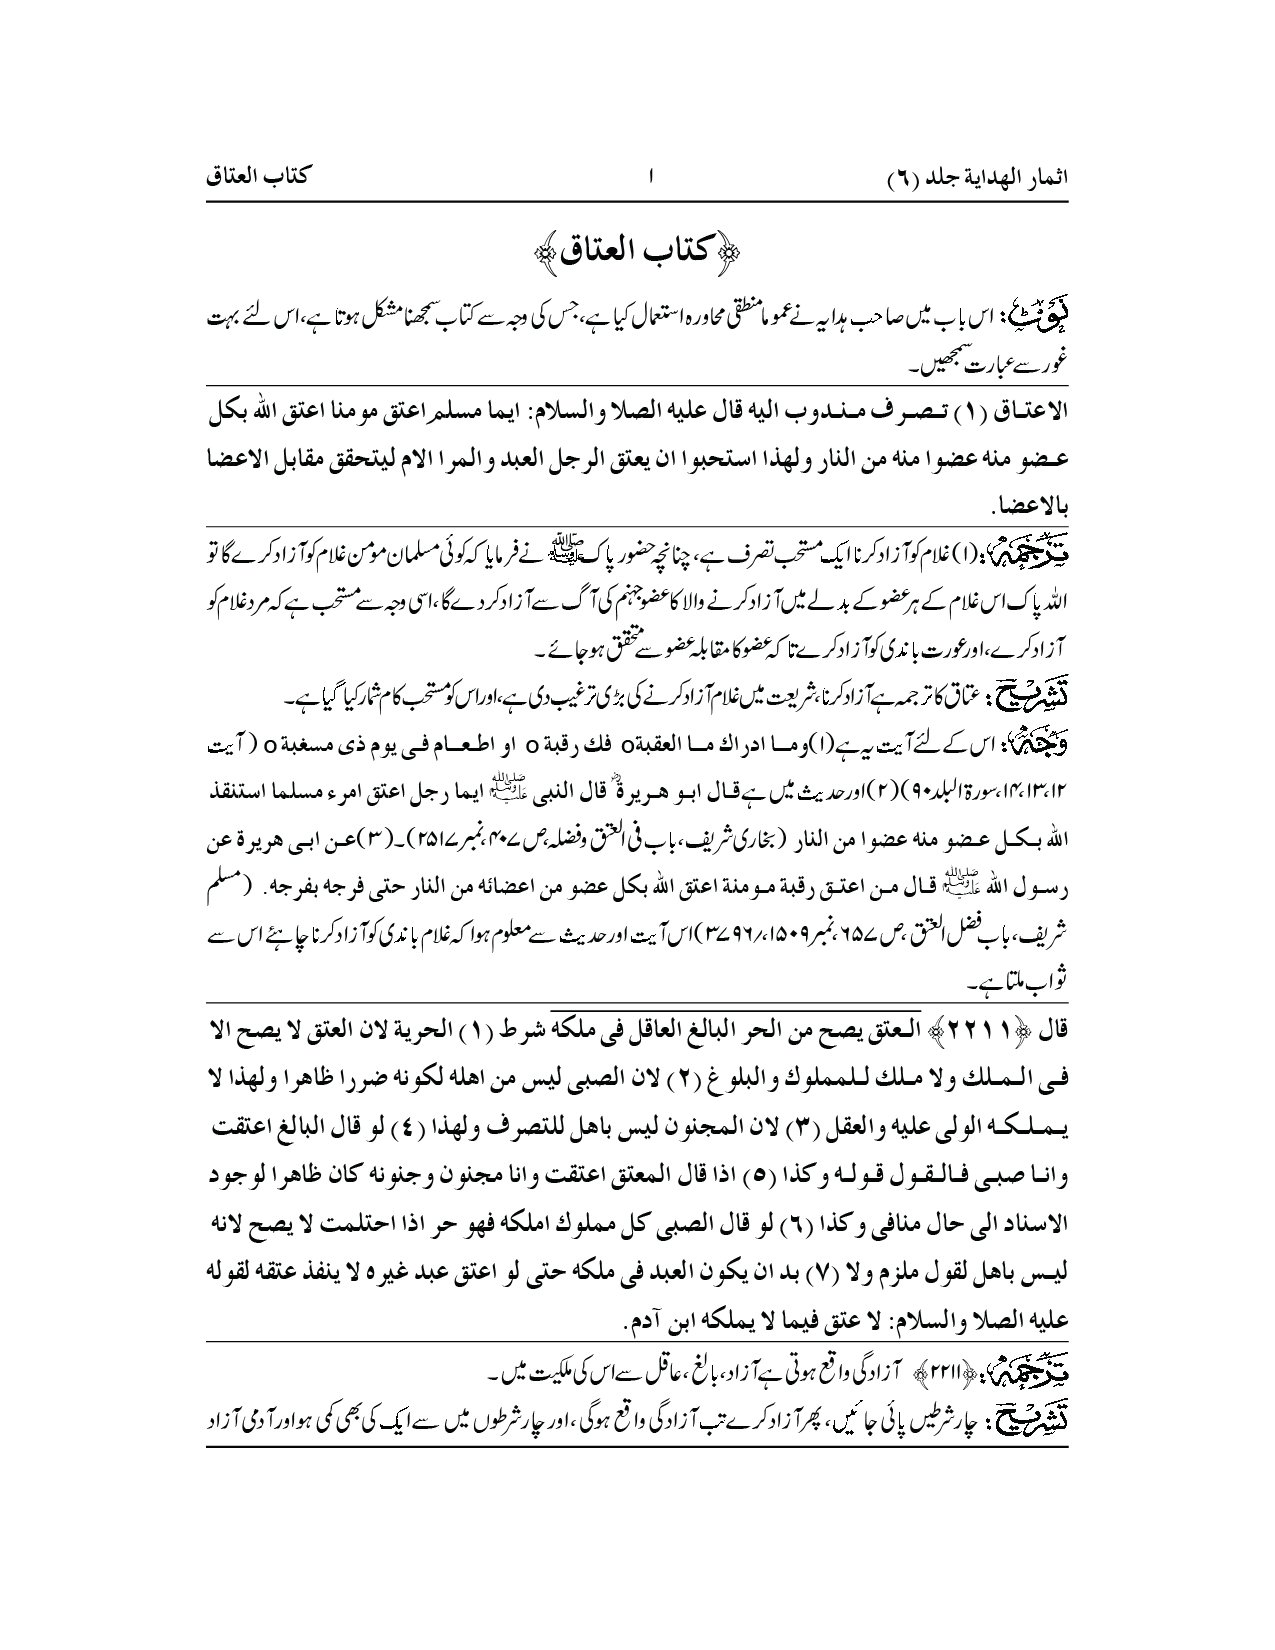 اثمار الهداية جلد (٦) ۱ كتاب العتاق
﴿كتاب العتاق﴾
نوٹ: اس باب میں صاحب ہدایہ نے عموما منطقی محاورہ استعمال کیا ہے، جس کی وجہ سے کتاب سمجھنا مشکل ہوتا ہے، اس لئے بہت
غور سے عبارت سمجھیں۔
الاعتاق (١) تصرف مندوب اليه قال عليه الصلا والسلام: ايما مسلم اعتق مومنا اعتق الله بكل
عضو منه عضوا منه من النار ولهذا استحبوا ان يعتق الرجل العبد والمرا الام ليتحقق مقابل الاعضا
بالاعضا.
ترجمہ: (۱) غلام کو آزاد کرنا ایک مستحب تصرف ہے، چنانچہ حضور پاک ﷺ نے فرمایا کہ کوئی مسلمان مؤمن غلام کو آزاد کرے گا تو
اللہ پاک اس غلام کے ہر عضو کے بدلے میں آزاد کرنے والا کا عضو جہنم کی آگ سے آزاد کردے گا، اسی وجہ سے مستحب ہے کہ مرد غلام کو
آزاد کرے، اور عورت باندی کو آزاد کرے تا کہ عضو کا مقابلہ عضو سے متحقق ہو جائے۔
تشریح: عتاق کا ترجمہ ہے آزاد کرنا، شریعت میں غلام آزاد کرنے کی بڑی ترغیب دی ہے، اور اس کو مستحب کام شمار کیا گیا ہے۔
وجہ: اس کے لئے آیت یہ ہے (۱) وما ادراك ما العقبة o فك رقبة o او اطعام فى يوم ذى مسغبة o (آیت
۱۲،۱۳،۱۴، سورۃ البلد ۹۰) (۲) اور حدیث میں ہے قال ابو هريرةؓ قال النبى ﷺ ايما رجل اعتق امرء مسلما استنقذ
الله بكل عضو منه عضوا من النار (بخاری شریف، باب فی العتق وفضلہ، ص ۴۰۷، نمبر ۲۵۱۷)۔ (۳) عن ابى هريرة عن
رسول الله ﷺ قال من اعتق رقبة مومنة اعتق الله بكل عضو من اعضائه من النار حتى فرجه بفرجه. (مسلم
شریف، باب فضل العتق، ص ۶۵۷، نمبر ۱۵۰۹، ۳۷۹۶) اس آیت اور حدیث سے معلوم ہوا کہ غلام باندی کو آزاد کرنا چاہئے اس سے
ثواب ملتا ہے۔
قال ﴿٢٢١١﴾ العتق يصح من الحر البالغ العاقل فى ملكه شرط (١) الحرية لان العتق لا يصح الا
فى الملك ولا ملك للمملوك والبلوغ (٢) لان الصبى ليس من اهله لكونه ضررا ظاهرا ولهذا لا
يملكه الولى عليه والعقل (٣) لان المجنون ليس باهل للتصرف ولهذا (٤) لو قال البالغ اعتقت
وانا صبى فالقول قوله وكذا (٥) اذا قال المعتق اعتقت وانا مجنون وجنونه كان ظاهرا لوجود
الاسناد الى حال منافى وكذا (٦) لو قال الصبى كل مملوك املكه فهو حر اذا احتلمت لا يصح لانه
ليس باهل لقول ملزم ولا (٧) بد ان يكون العبد فى ملكه حتى لو اعتق عبد غيره لا ينفذ عتقه لقوله
عليه الصلا والسلام: لا عتق فيما لا يملكه ابن آدم.
ترجمہ: ﴿۲۲۱۱﴾ آزادگی واقع ہوتی ہے آزاد، بالغ، عاقل سے اس کی ملکیت میں۔
تشریح: چار شرطیں پائی جائیں، پھر آزاد کرے تب آزادگی واقع ہوگی، اور چار شرطوں میں سے ایک کی بھی کمی ہو اور آدمی آزاد